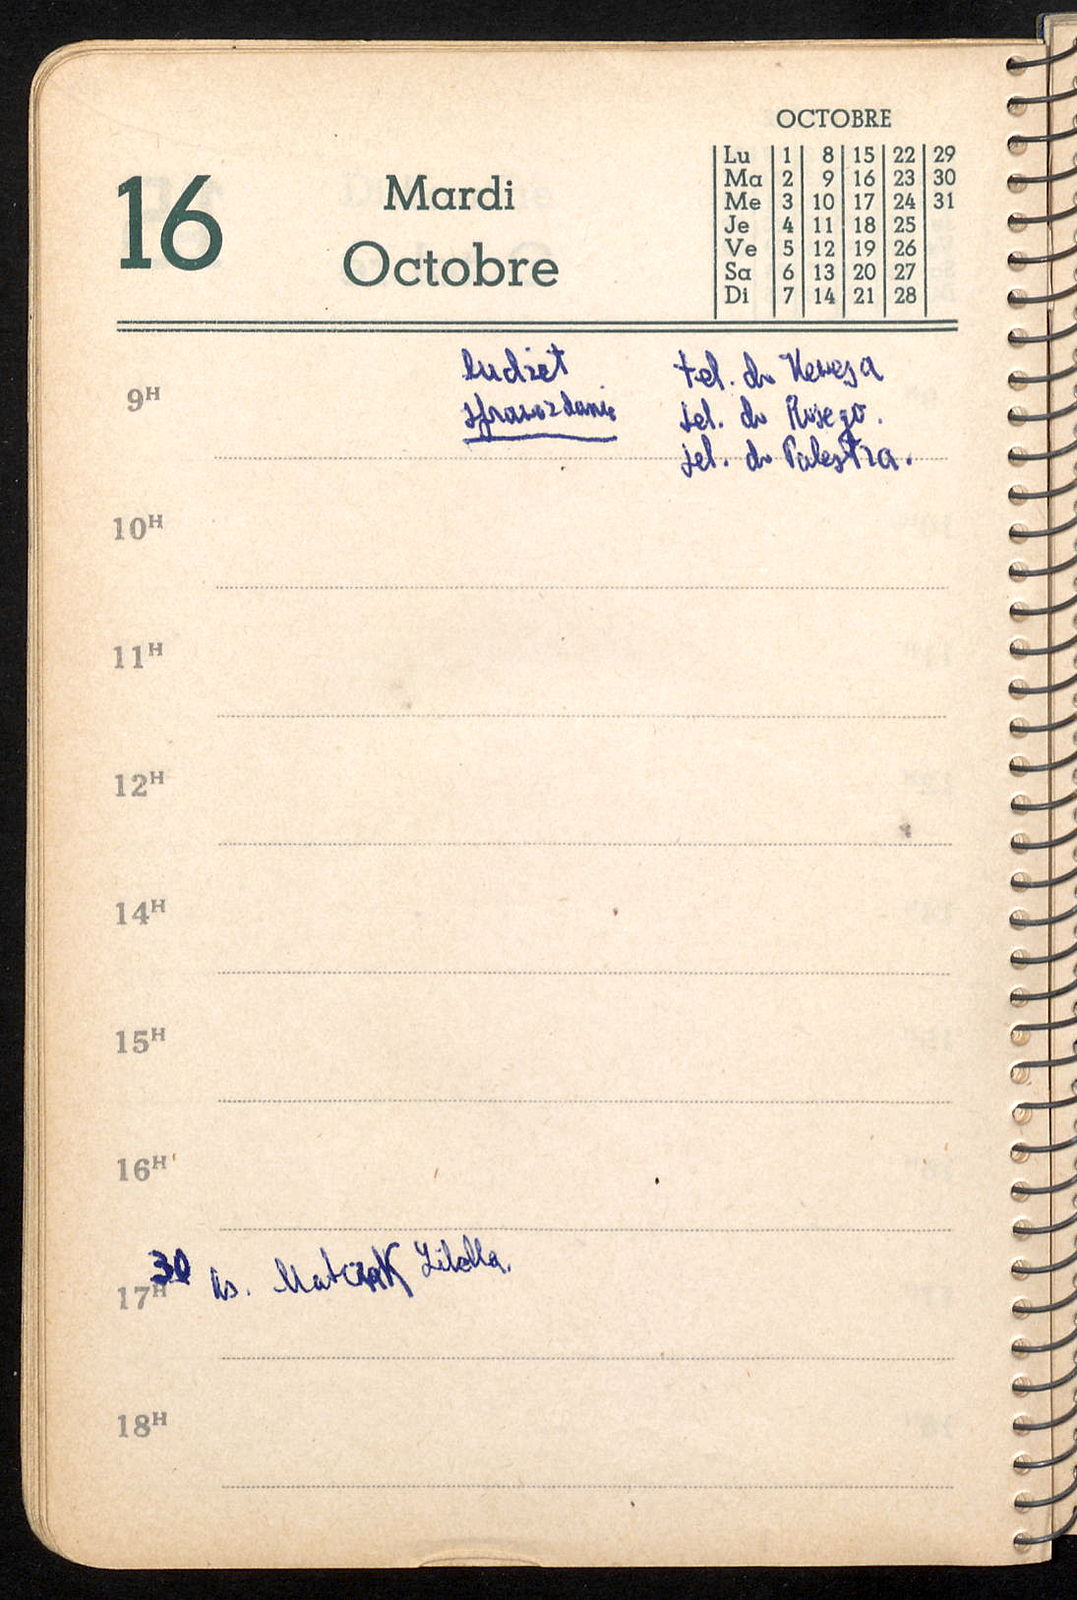 OCTOBRE
Lu 1 8 15 22 29
Ma 2 9 16 23 30
Me 3 10 17 24 31
Je 4 11 18 25
Ve 5 12 19 26
Sa 6 13 20 27
Di 7 14 21 28
16
Mardi
Octobre
9H
budżet
sprawozdanie
tel. do
tel. do
tel. do Palestra.
10H
11H
12H
14H
15H
16H
30
17H
ks. Matczak
18H